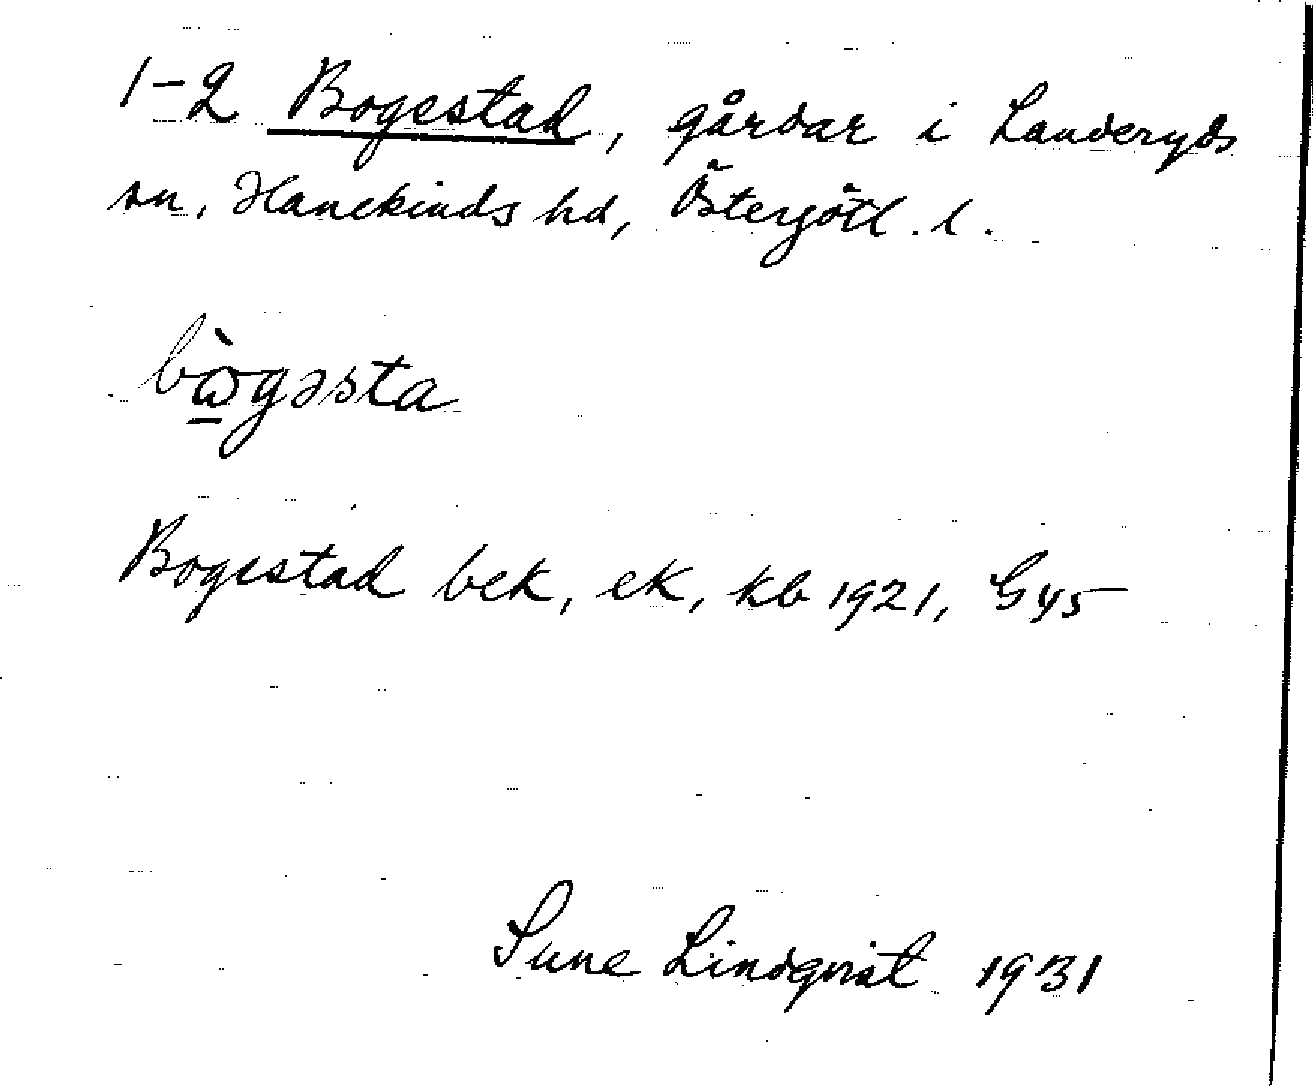 1-2 Bogestad, gårdar i Landeryds
sn, Hanekinds hd, Östergötl. l.
bὼ̱gəsta
Bogestad bek, ek, kb 1921, G45
Sune Lindqvist 1931